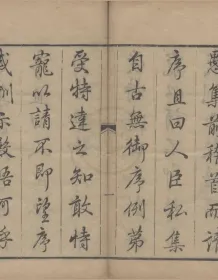 愚集前稽首而請
序且曰人臣私集
自古無御序例第
受特達之知敢特
寵以請不即望序
或訓示數語可乎